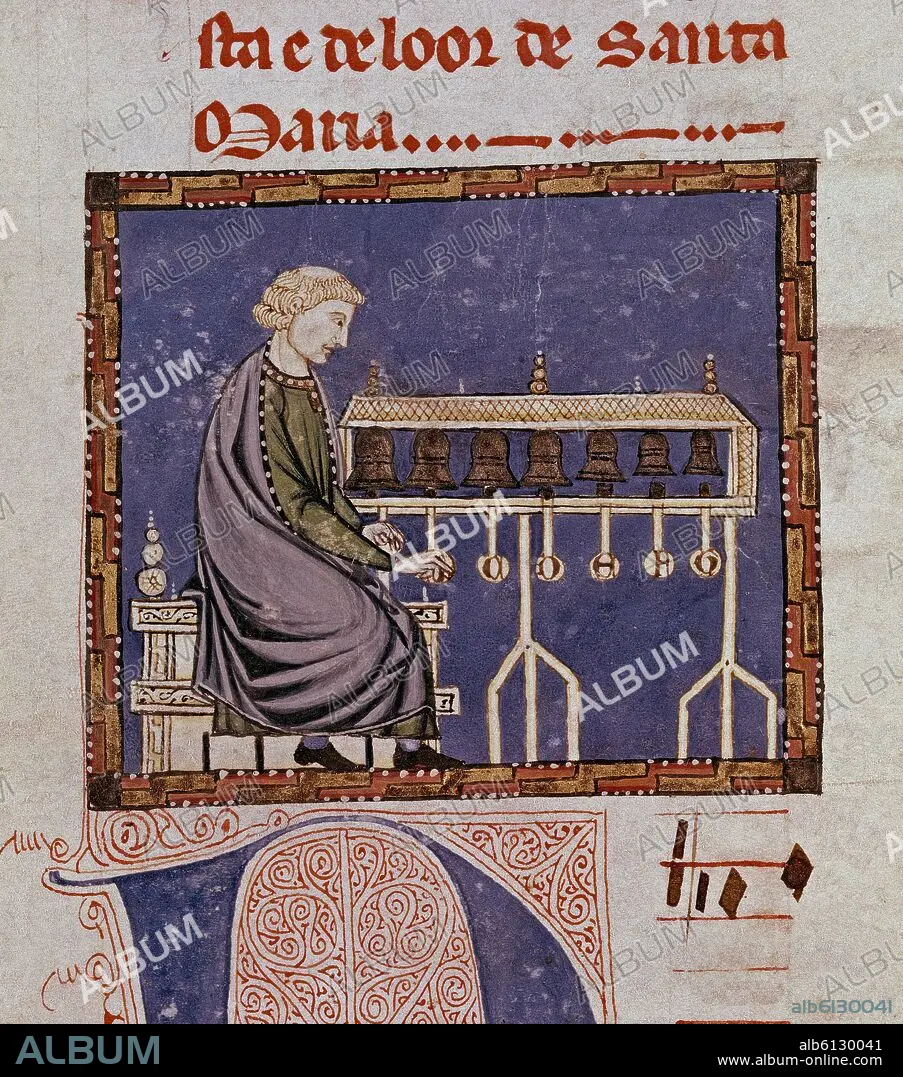 sta e de loor de Santa
Maria
ALBUM
alb6130041
ALBUM
alb6130041
www.album-online.com